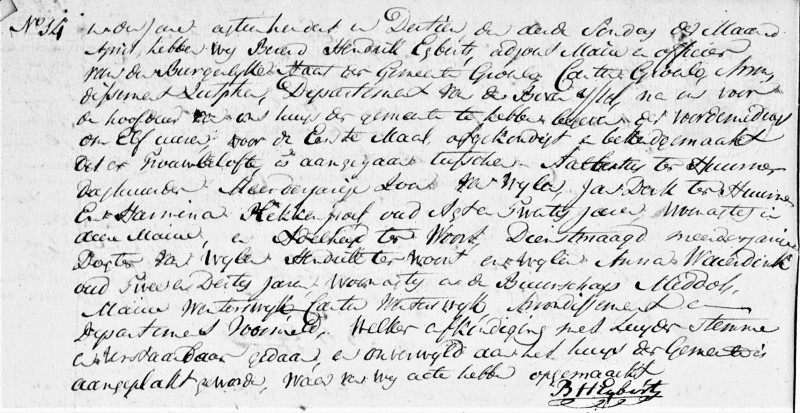 No 34 in den Jare agtienhondert en Dertien, den derde Sondag der Maand
April, hebben wy Berend Hendrik Egberts, adjonct Maire en officier
van den Burgelyken Staat der Gemeente Groenlo, Canton Groenlo, Arron-
dissement Zutphen, Departement van de Boven Yssel, na ons voor
de hoofddeur van ons huys der gemeente te hebben begeven des voordemiddags
om Elf uuren, voor de Eerste Maal, afgekondigt en bekendgemaakt
dat er trouwbelofte is aangegaan tusschen Aalbertus ter Huurne
daghuurder Meerderjarige Zoon van Wylen Jan Derk ter Huurne
En Harmina Hekken hoef oud Agt en twintig Jaren, Wonagtig in
deese Mairie, en ter Woort, Dienstmaagd meerderjarige
Dogter van Wylen Hendrik ter Woort en Wylen Anna
oud twee en Dertig Jaren, Woonagtig in de Buurschap Meddoh,
Mairie Wenterswyk, Canton Wenterswyk Arrondissement en
Departement Voormeld, Welker afkondiging met luyder Stemme
en Verstaanbaar gedaan, en onverwyld aan het huys der Gemeente is
aangeplakt geworden, Waar van wy acte hebben opgemaakt
B H Egberts